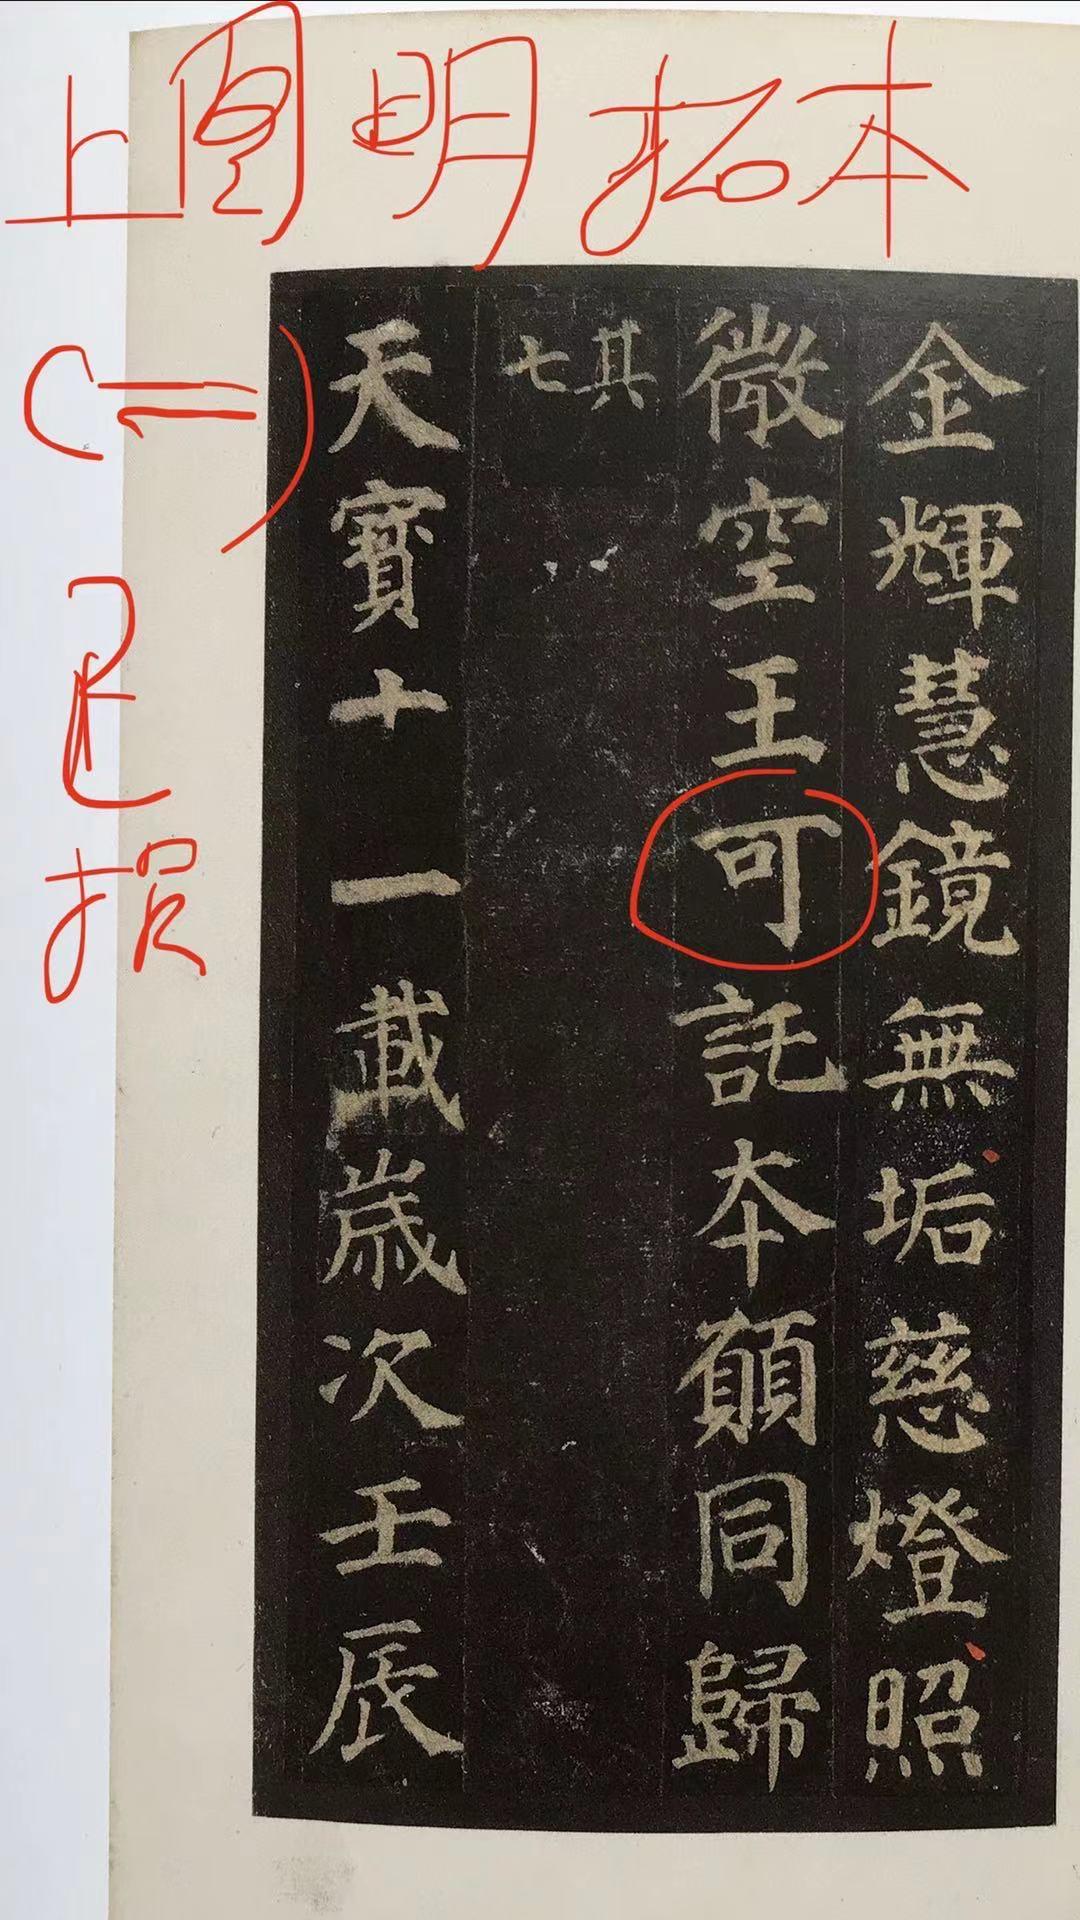 上图明拓本
(二)
已损
金輝慧鏡無垢慈燈照
微空王可託本願同歸
其七
天寶十一載歲次壬辰